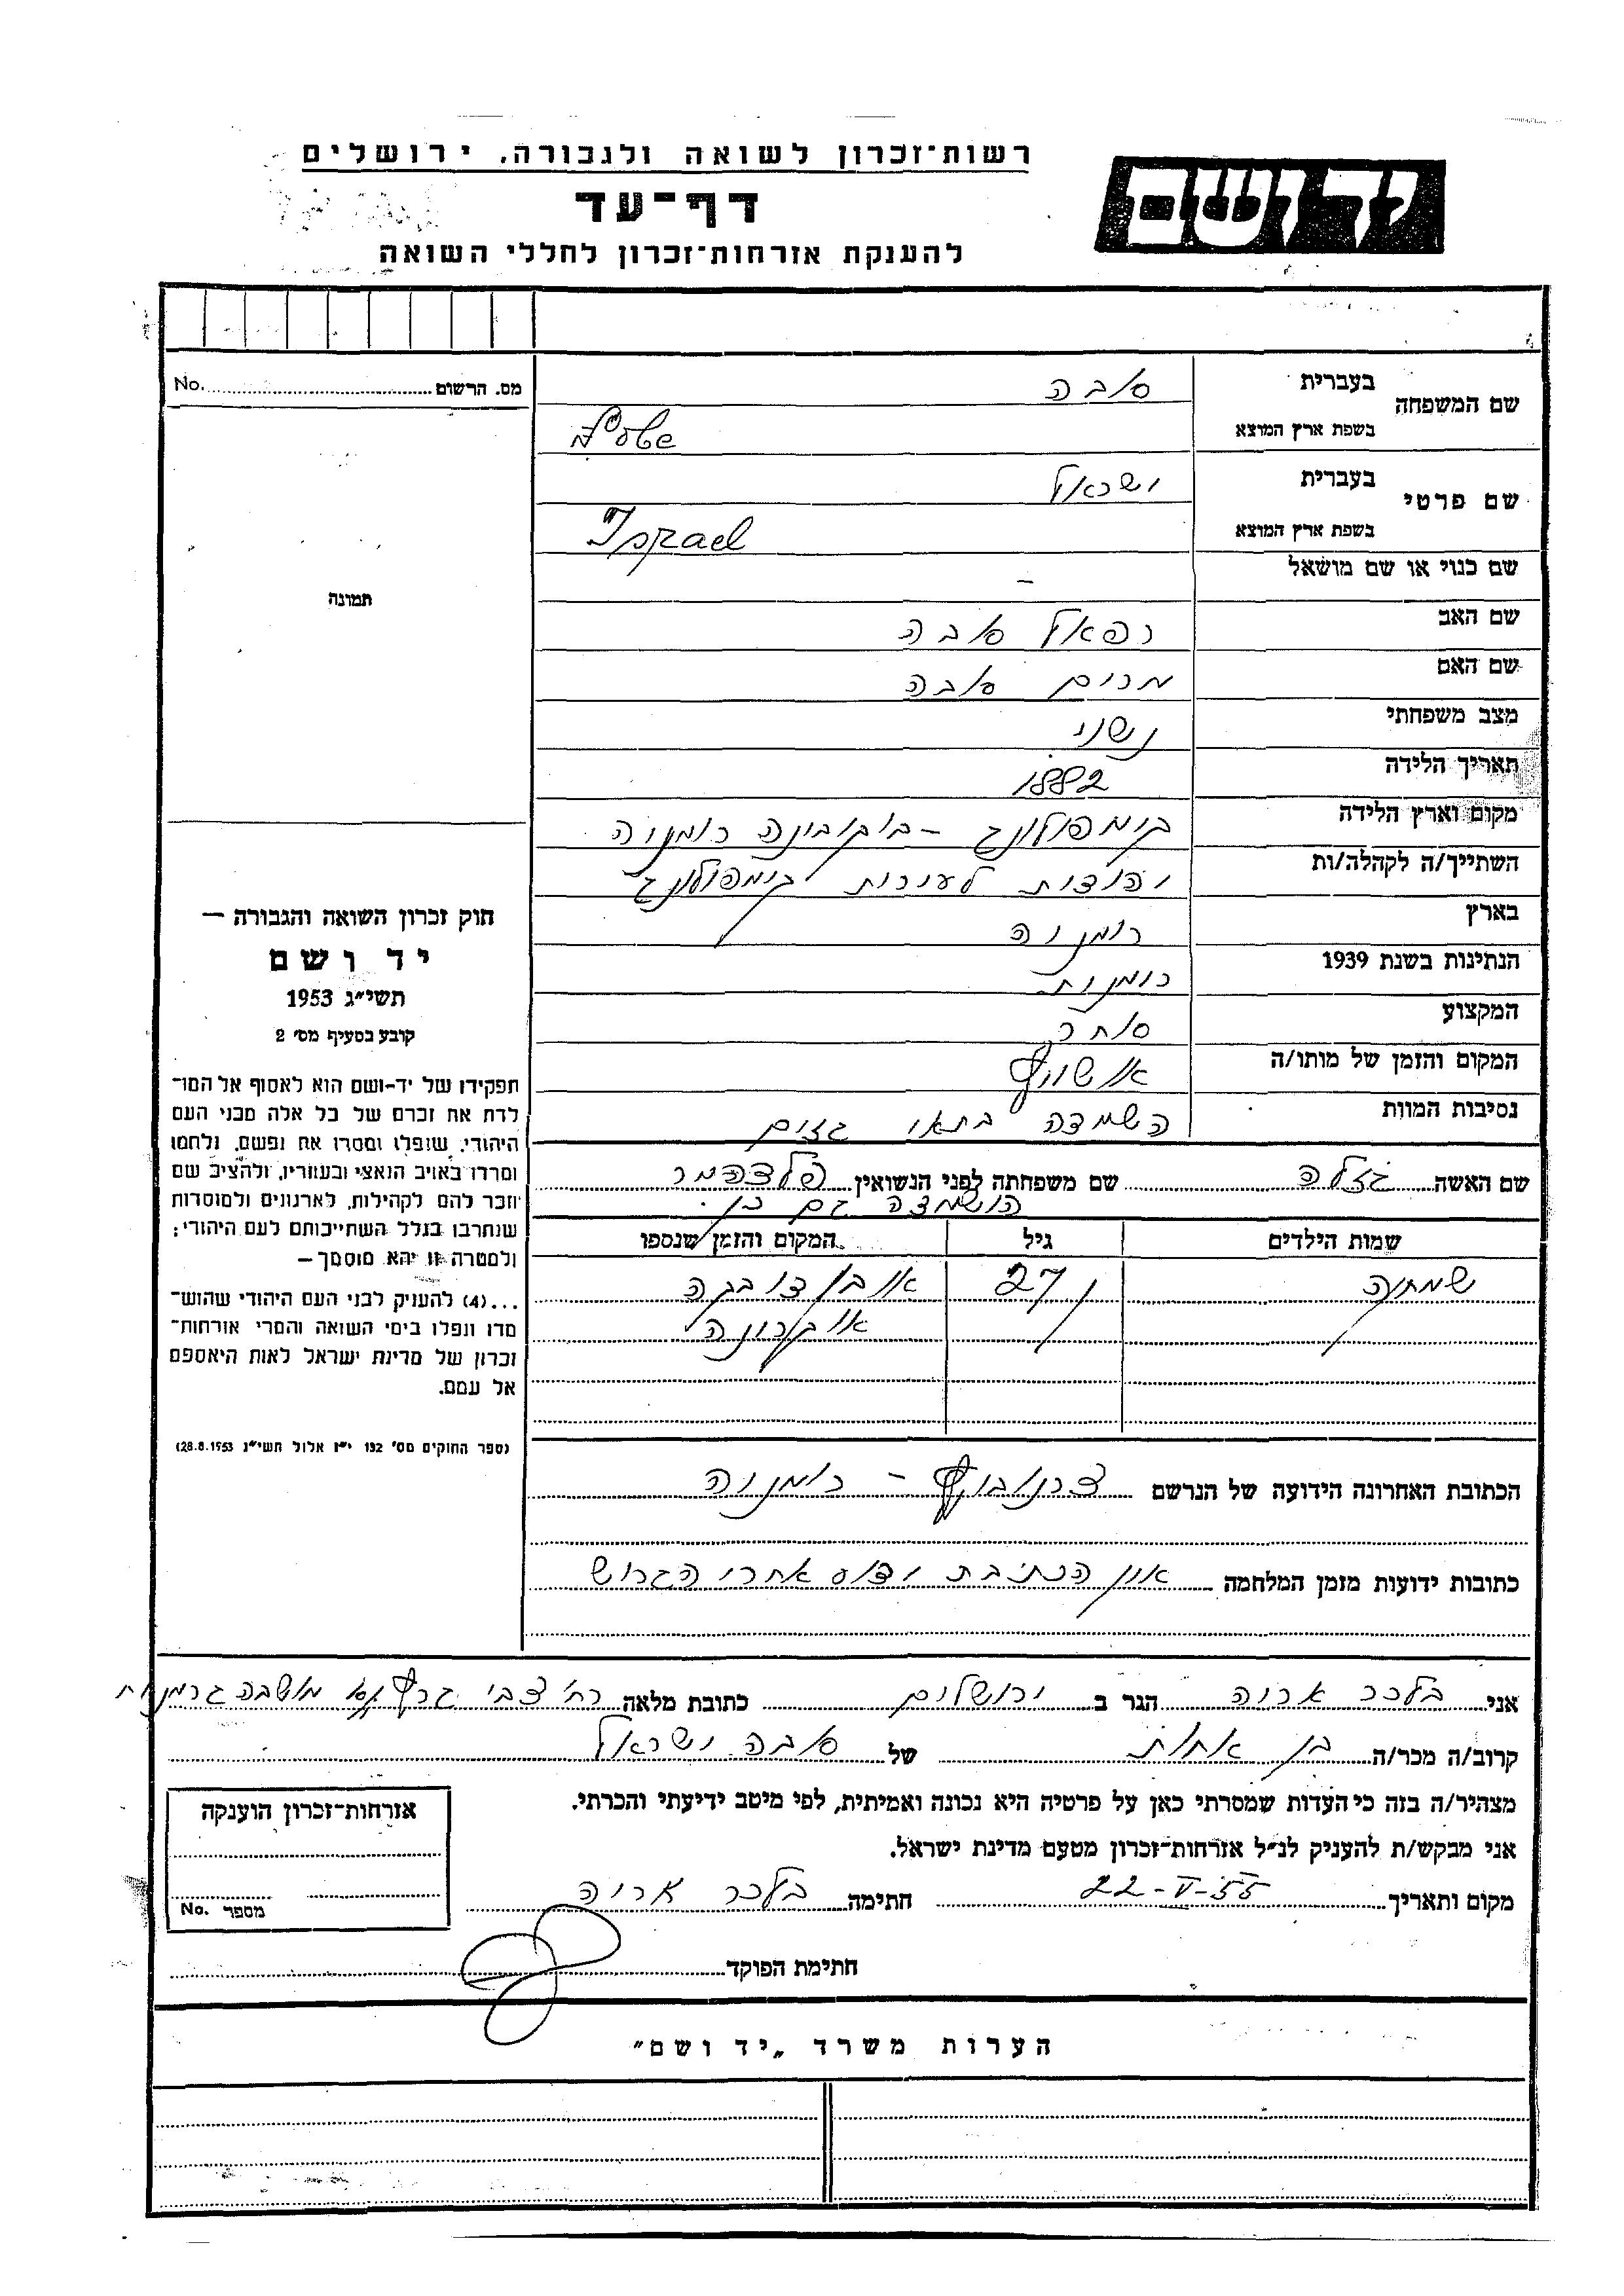 רשות־זכרון לשואה ולגבורה, ירושלים
יד ושם
דף־עד
להענקת אזרחות־זכרון לחללי השואה
מס. הרשום No.
תמונה
חוק זכרון השואה והגבורה —
יד ושם
תשי״ג 1953
קובע בסעיף מס׳ 2
תפקידו של יד-ושם הוא לאסוף אל המו־
לדת את זכרם של כל אלה מבני העם
היהודי, שנפלו ומסרו את נפשם, נלחמו
ומרדו באויב הנאצי ובעוזריו, ולהציב שם
וזכר להם לקהילות, לארגונים ולמוסדות
שנחרבו בגלל השתייכותם לעם היהודי;
ולמטרה זו יהא מוסמך —
...(4) להענק לבני העם היהודי שהוש־
מדו ונפלו בימי השואה והמרי אזרחות־
זכרון של מדינת ישראל לאות היאספם
אל עמם.
(ספר החוקים מס׳ 132 י״ז אלול תשי״ג 28.8.1953)
שם המשפחה בעברית סובה
בשפת ארץ המוצא
שם פרטי בעברית ישראל
בשפת ארץ המוצא Israel
שם כנוי או שם מושאל –
שם האב רפאל סובה
שם האם מרים סובה
מצב משפחתי נשוי
תאריך הלידה 1882
מקום וארץ הלידה קימפולונג – בוקובינה רומניה
השתייך/ה לקהלה/ות יהודית לעירות קימפולונג
בארץ רומניה
הנתינות בשנת 1939 רומנית
המקצוע סוחר
המקום והזמן של מותו/ה אושויץ
נסיבות המוות השמדה בתאי גזים
שם האשה גזלה שם משפחתה לפני הנשואין
הושמדה גם כן.
שמות הילדים גיל המקום והזמן שנספו
שמחה 27
אוקרינה
הכתובת האחרונה הידועה של הנרשם צרנוביץ – רומניה
כתובות ידועות מזמן המלחמה אין הכתובת ידוע אחרי הגרוש
אני בלכר אריה הגר ב ירושלים כתובת מלאה רח׳ צבי גרץ מושבה גרמנית
קרוב/ה מכר/ה בן אחות של סובה ישראל
מצהיר/ה בזה כי העדות שמסרתי כאן על פרטיה היא נכונה ואמיתית, לפי מיטב ידיעתי והכרתי.
אני מבקש/ת להעניק לנ״ל אזרחות־זכרון מטעם מדינת ישראל.
מקום ותאריך 22-V-55 חתימה בלכר אריה
חתימת הפוקד
אזרחות־זכרון הוענקה
מספר No.
הערות משרד „יד ושם״